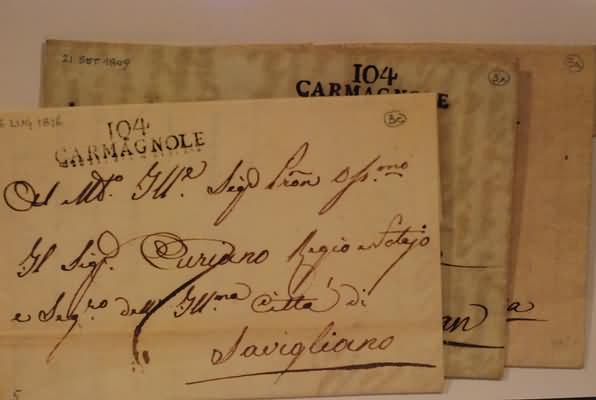 21 SET 1809
3A
3A
104
CARMAGNOLE
LUG 1816
3C
104
CARMAGNOLE
Al M.to Ill.e Sig.r Pron Oss.mo
Il Sig.r Curiano Regio Notajo
e Seg.ro dell' Ill.ma Città di
Savigliano
5